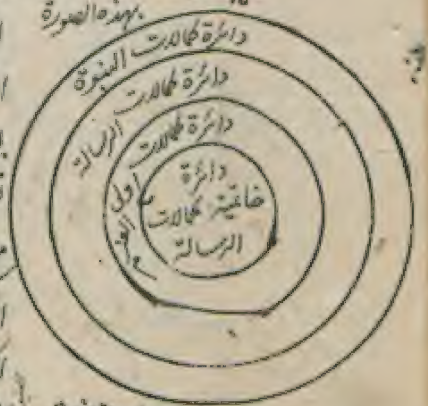 بهذه الصورة
دائرة كمالات النبوة
دائرة كمالات الرسالة
دائرة كمالات
اولى العزم
دائرة
خاتمية كمالات
الرسالة